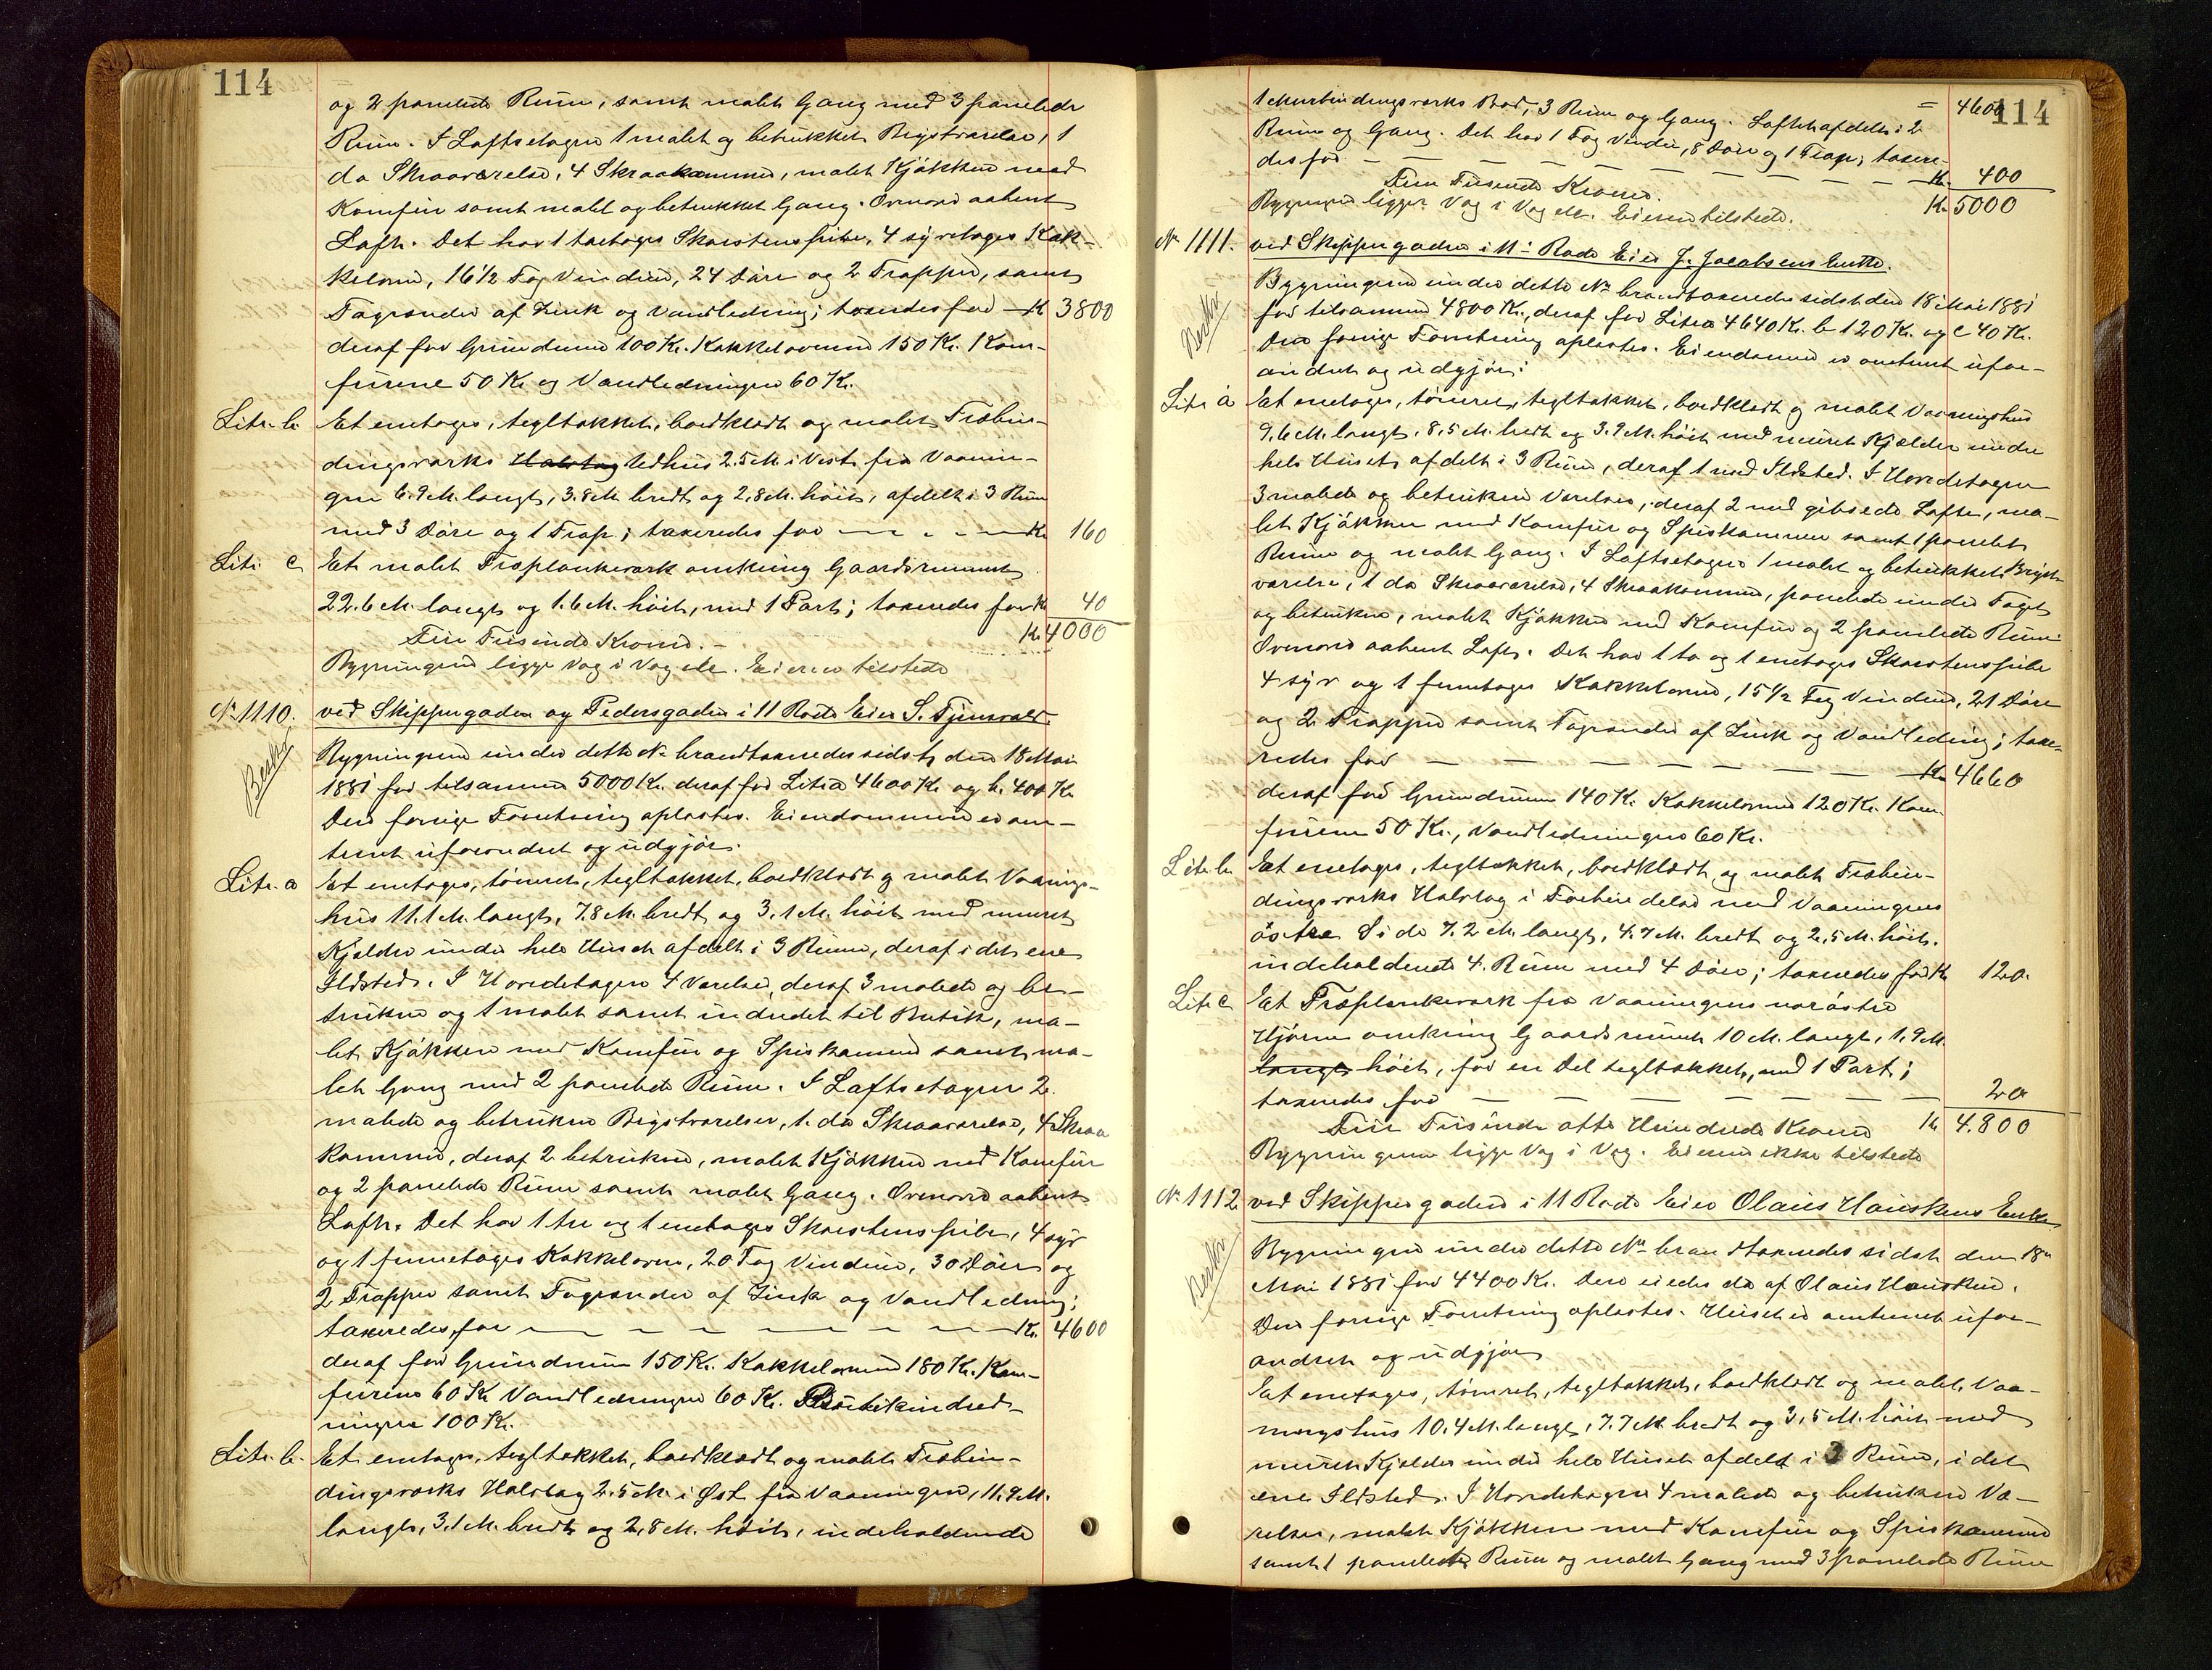 114
og 2 panelede Rum, samt malet Gang med 3 panelede
Rum. I Loftsetagen 1 malet og betrukket Brystværelse, 1
do Skraaværelse, 4 Skraakammer, malet Kjøkken med
Komfur samt malet og betrukket Gang. Ovenover aabent
Loft. Det har 1 toetages Skorstenspibe, 4 syvetages Kak-
kelovne, 16 1/2 Fag Vinduer, 24 Døre og 2 Trapper, samt
Tagrender af Zink og Vandledning; taxeredes for — Kr 3800
deraf for Grundmur 100 Kr. Kakkelovnene 150 Kr. Kom-
furene 50 Kr og Vandledningen 60 Kr.
Litr. b. Et enetages, tegltækket, bordklædt og malet Træbin-
dingsværks Halvtag Vedhus 2.5 M. i Vest fra Vaanin-
gen 6.9 M. langt, 3.8 M bredt og 2,8 M. høit, afdelt i 3 Rum
med 3 Døre og 1 Trap; taxeredes for — Kr 160
Litr. c Et malet Træplankeværk omkring Gaardsrummet
22.6 M. langt og 1.6 M. høit, med 1 Port; taxeredes for Kr 40
Fire Tusinde Kroner. — Kr. 4000
Bygningerne ligge Væg i Væg etc. Eieren tilstede
No 1110. ved Skippergaden og Pedersgaden i 11 Rode Eier S. Tjensvold.
Beskr Bygningerne under dette No brandtaxeredes sidst den 18 Mai
1881 for tilsammen 5000 Kr. deraf for Litra a 4600 Kr og b. 400 Kr.
Den forrige Forretning oplæstes. Eiendommen er om-
trent uforandret og udgjør:
Litr. a Et enetages, tømret, tegltækket, bordklædt og malet Vaanings-
hus 11.1 M. langt, 7.8 M. bredt og 3.1 M. høit med muret
Kjelder under hele Huset afdelt i 3 Rum, deraf i det ene
Ildsted. I Hovedetagen 4 Værelser, deraf 3 malede og be-
trukne og 1 malet samt indredet til Butik, ma-
let Kjøkken med Komfur og Spiskammer samt ma-
let Gang med 2 panelede Rum. I Loftsetagen 2
malede og betrukne Brystværelser, 1 do Skraaværelse, 4 Skraa
kammer, deraf 2 betrukne, malet Kjøkken med Komfur
og 2 panelede Rum samt malet Gang. Ovenover aabent
Loft. Det har 1 tre og 1 enetages Skorstenspibe, 4 syv
og 1 femetages Kakkelovn, 20 Fag Vinduer, 30 Døre og
2 Trapper samt Tagrender af Zink og Vandledning;
taxeredes for — Kr. 4600
deraf for Grundmur 150 Kr. Kakkelovnene 180 Kr. Kom-
furene 60 Kr Vandledningen 60 Kr. Butikindred-
ningen 100 Kr.
Litr. b. Et enetages, tegltækket, bordklædt og malet Træbin-
dingsværks Halvtag 2.5 M. i Øst fra Vaaningen, 11.9 M.
langt, 3.1 M. bredt og 2,8 M. høit, indeholdende
114
1 Murbindingsværks Bod, 3 Rum og Gang. Loftet afdelt i 2 = 4600
Rum og Gang. Det har 1 Fag Vindu, 8 Døre og 1 Trap; taxere-
des for — Kr. 400
Fem Tusinde Kroner. Kr 5000
Bygningerne ligge Væg i Væg etc. Eieren tilstede.
No 1111. ved Skippergaden i 11te Rode Eier J. Jacobsens Enke.
Beskr Bygningerne under dette No brandtaxeredes sidst den 18 Mai 1881
for tilsammen 4800 Kr., deraf for Litra a 4640 Kr. b 120 Kr. og c 40 Kr.
Den forrige Forretning oplæstes. Eiendommen er omtrent ufor-
andret og udgjør:
Litr a Et enetages, tømret, tegltækket, bordklædt og malet Vaaningshus
9.6 M. langt, 8,5 M. bredt og 3.9 M. høit med muret Kjælder under
hele Huset, afdelt i 3 Rum, deraf 1 med Ildsted. I Hovedetagen
3 malede og betrukne Værelser, deraf 2 med gibsede Lofter, ma-
let Kjøkken med Komfur og Spiskammer samt 1 panelet
Rum og malet Gang. I Loftsetagen 1 malet og betrukket Bryst-
værelse, 1 do Skraaværelse, 4 Skraakammer, panelede under Taget
og betrukne, malet Kjøkken med Komfur og 2 panelede Rum
Ovenover aabent Loft. Det har 1 to og 1 enetages Skorstenspibe
4 syv og 1 femetages Kakkelovne, 15 1/2 Fag Vinduer, 21 Døre
og 2 Trapper samt Tagrender af Zink og Vandledning; taxe-
redes for — Kr. 4660
deraf for Grundmuren 140 Kr. Kakkelovnene 120 Kr. Kom-
furene 50 Kr., Vandledningen 60 Kr.
Litr. b. Et enetages, tegltækket, bordklædt og malet Træbin-
dingsværks Halvtag i Forbindelse med Vaaningens
østre Side 7.2 M. langt, 4.7 M. bredt og 2,5 M. høit.
indeholdende 4 Rum med 4 Døre; taxeredes for Kr 120.
Litr c Et Træplankeværk fra Vaaningens norøstre
Hjørne omkring Gaardsrummet 10 M. langt, 1.9 M.
langt høit, for en Del tegltækket, med 1 Port;
taxeredes for — 20
Fire Tusinde otte Hundrede Kroner Kr 4.800
Bygningerne ligge Væg i Væg. Eieren ikke tilstede
No 1112 ved Skippergaden i 11 Rode Eier Olaus Hauskens Enke
Beskr Bygningen under dette No brandtaxeredes sidst den 18de
Mai 1881 for 4400 Kr. Den eiedes da af Olaus Hausken.
Den forrige Forretning oplæstes. Huset er omtrent ufor-
andret og udgjør
Et enetages, tømret, tegltækket, bordklædt og malet Vaa-
ningshus 10.4 M. langt, 7.7 M. bredt og 3,5 M. høit med
muret Kjælder under hele Huset afdelt i 3 Rum, i det
ene Ildsted. I Hovedetagen 4 malede og betrukne Væ-
relser, malet Kjøkken med Komfur og Spiskammer
samt 1 panelede Rum og malet Gang med 3 panelede Rum